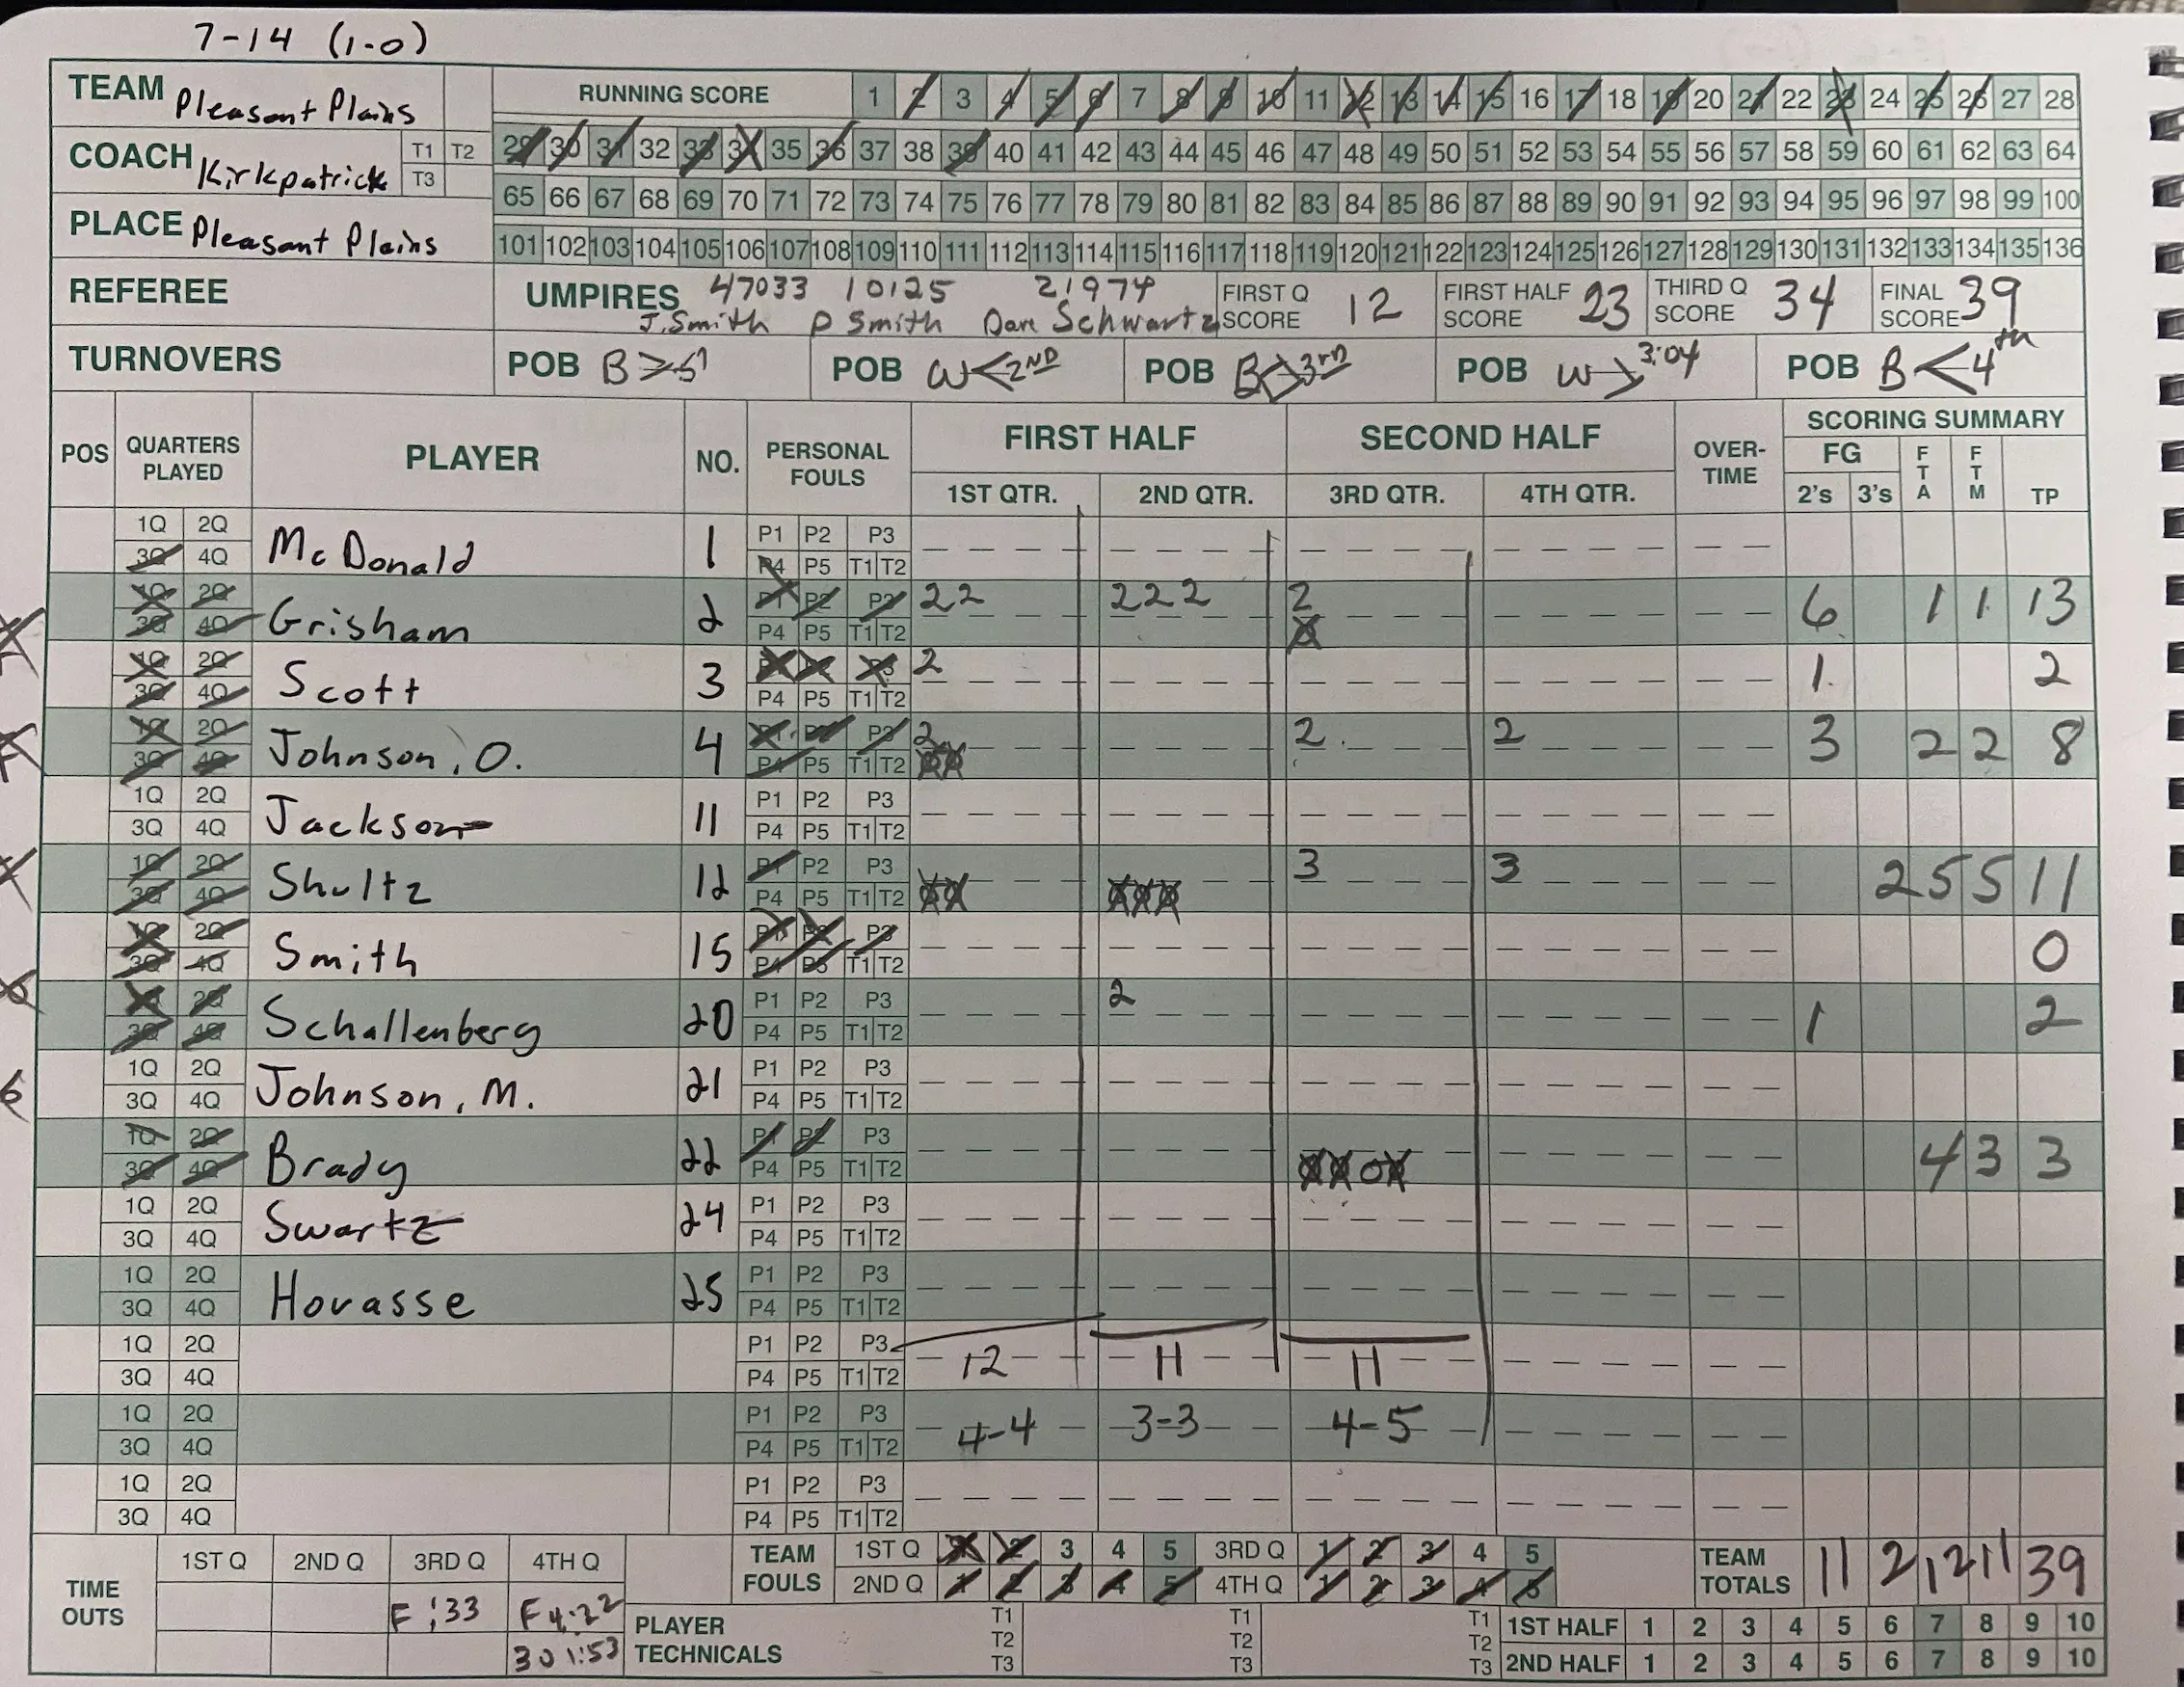 7-14 (1-0)
TEAM Pleasant Plains RUNNING SCORE 1 2 3 4 5 6 7 8 9 10 11 12 13 14 15 16 17 18 19 20 21 22 23 24 25 26 27 28
29 30 31 32 33 34 35 36 37 38 39 40 41 42 43 44 45 46 47 48 49 50 51 52 53 54 55 56 57 58 59 60 61 62 63 64
COACH Kirkpatrick T1 T2 T3
65 66 67 68 69 70 71 72 73 74 75 76 77 78 79 80 81 82 83 84 85 86 87 88 89 90 91 92 93 94 95 96 97 98 99 100
PLACE Pleasant Plains
101 102 103 104 105 106 107 108 109 110 111 112 113 114 115 116 117 118 119 120 121 122 123 124 125 126 127 128 129 130 131 132 133 134 135 136
REFEREE UMPIRES 47033 10125 21974 FIRST Q SCORE 12 FIRST HALF SCORE 23 THIRD Q SCORE 34 FINAL SCORE 39
J. Smith D Smith Dave Schwartz
TURNOVERS POB B > POB W < 2ND POB B 3rd POB W > 3:04 POB B < 4th
POS QUARTERS PLAYED PLAYER NO. PERSONAL FOULS FIRST HALF SECOND HALF OVER-TIME SCORING SUMMARY
1ST QTR. 2ND QTR. 3RD QTR. 4TH QTR. FG 2's 3's FTA FTM TP
1Q 2Q McDonald 1 P1 P2 P3
3Q 4Q P4 P5 T1 T2
1Q 2Q Grisham 2 P1 P2 P3 22 222 2 6 1 1 13
3Q 4Q P4 P5 T1 T2 X
1Q 2Q Scott 3 P1 P2 P3 2 1 2
3Q 4Q P4 P5 T1 T2
1Q 2Q Johnson, O. 4 P1 P2 P3 2 2 2 3 2 2 8
3Q 4Q P4 P5 T1 T2 XX
1Q 2Q Jackson 11 P1 P2 P3
3Q 4Q P4 P5 T1 T2
1Q 2Q Shultz 12 P1 P2 P3 3 3 2 5 5 11
3Q 4Q P4 P5 T1 T2 XX XXX
1Q 2Q Smith 15 P1 P2 P3 0
3Q 4Q P4 P5 T1 T2
1Q 2Q Schallenberg 20 P1 P2 P3 2 1 2
3Q 4Q P4 P5 T1 T2
1Q 2Q Johnson, M. 21 P1 P2 P3
3Q 4Q P4 P5 T1 T2
1Q 2Q Brady 22 P1 P2 P3 4 3 3
3Q 4Q P4 P5 T1 T2 XXOX
1Q 2Q Swartz 24 P1 P2 P3
3Q 4Q P4 P5 T1 T2
1Q 2Q Hovasse 25 P1 P2 P3
3Q 4Q P4 P5 T1 T2
1Q 2Q P1 P2 P3 12 11 11
3Q 4Q P4 P5 T1 T2
1Q 2Q P1 P2 P3 4-4 3-3 4-5
3Q 4Q P4 P5 T1 T2
1Q 2Q P1 P2 P3
3Q 4Q P4 P5 T1 T2
TIME OUTS 1ST Q 2ND Q 3RD Q 4TH Q
F :33 F 4:22
30 1:53
TEAM FOULS 1ST Q 1 2 3 4 5 3RD Q 1 2 3 4 5
2ND Q 1 2 3 4 5 4TH Q 1 2 3 4 5
TEAM TOTALS 11 2 12 11 39
PLAYER TECHNICALS T1 T2 T3 T1 T2 T3 T1 T2 T3
1ST HALF 1 2 3 4 5 6 7 8 9 10
2ND HALF 1 2 3 4 5 6 7 8 9 10